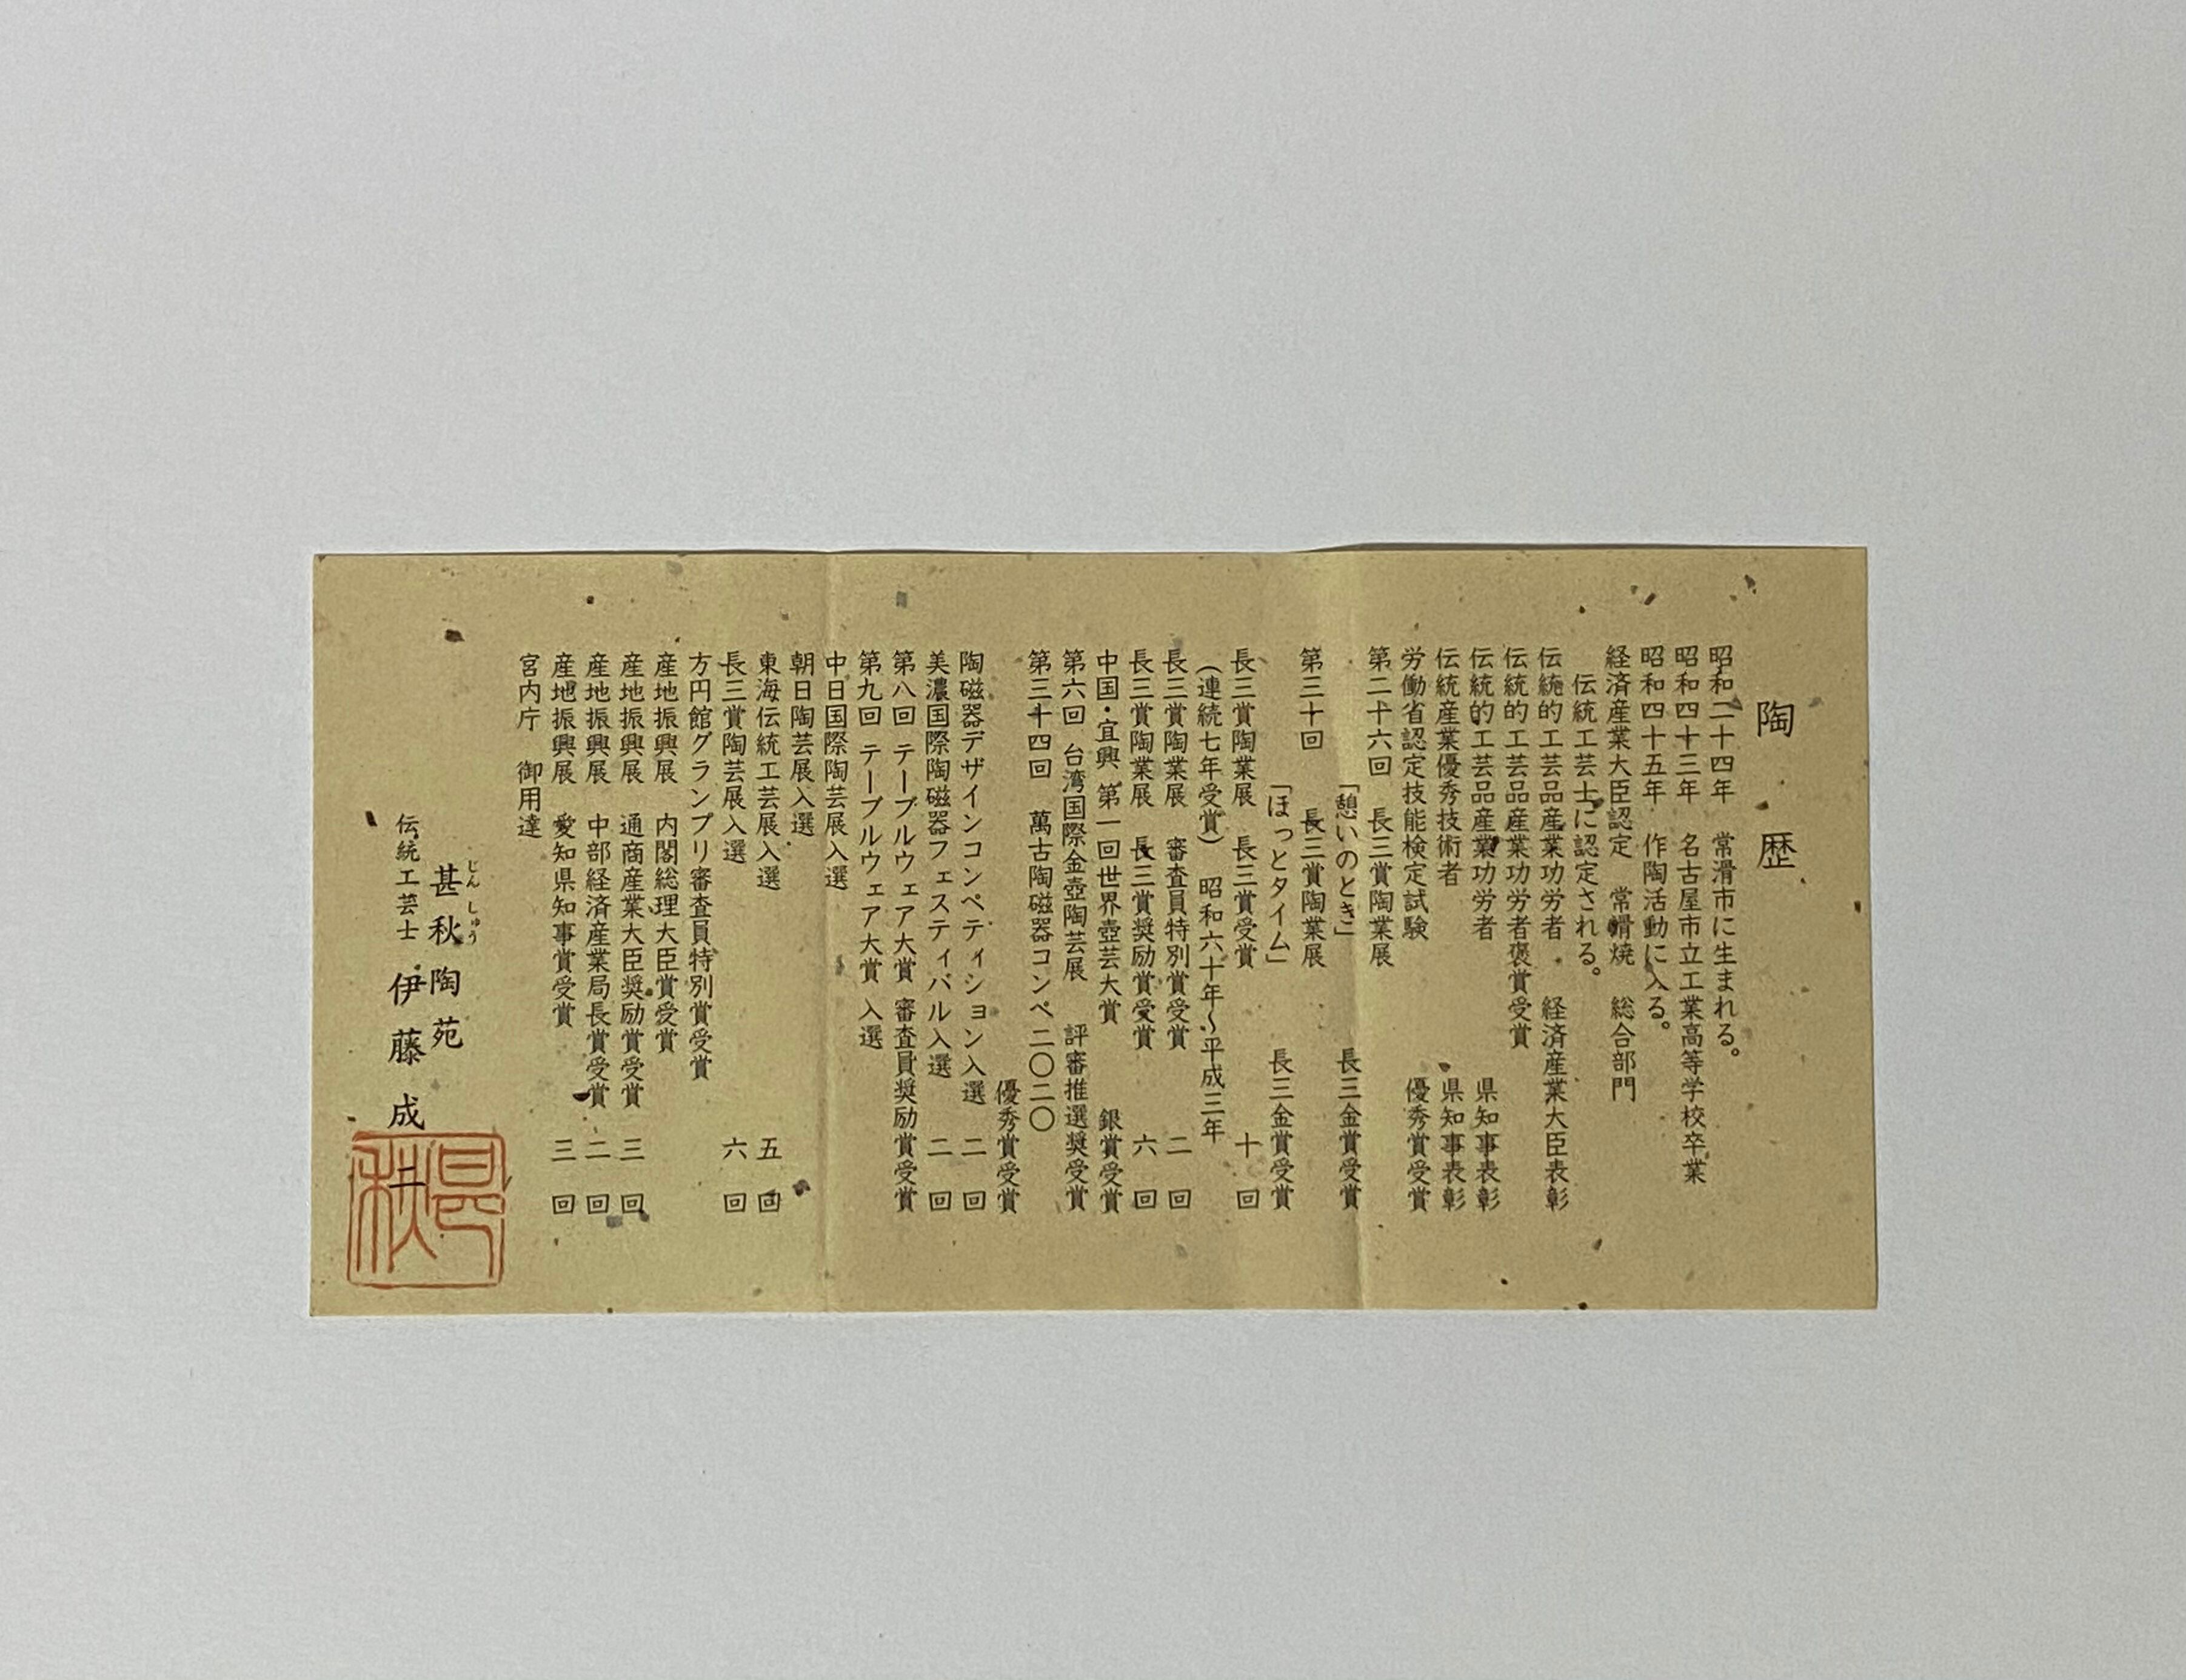 陶歴
昭和二十四年 常滑市に生まれる。
昭和四十三年 名古屋市立工業高等学校卒業
昭和四十五年 作陶活動に入る。
経済産業大臣認定 常滑焼 総合部門
伝統工芸士に認定される。
伝統的工芸品産業功労者 経済産業大臣表彰
伝統的工芸品産業功労者褒賞受賞
伝統的工芸品産業功労者 県知事表彰
伝統産業優秀技術者 県知事表彰
労働省認定技能検定試験 優秀賞受賞
第二十六回 長三賞陶業展
「憩いのとき」 長三金賞受賞
第三十回 長三賞陶業展
「ほっとタイム」 長三金賞受賞
長三賞陶業展 長三賞受賞 十回
（連続七年受賞） 昭和六十年～平成三年
長三賞陶業展 審査員特別賞受賞 二回
長三賞陶業展 長三賞奨励賞受賞 六回
中国・宜興 第一回世界壺芸大賞 銀賞受賞
第六回 台湾国際金壺陶芸展 評審推選奨受賞
第三十四回 萬古陶磁器コンペ二〇二〇
優秀賞受賞
陶磁器デザインコンペティション入選 二回
美濃国際陶磁器フェスティバル入選 二回
第八回 テーブルウェア大賞 審査員奨励賞受賞
第九回 テーブルウェア大賞 入選
中日国際陶芸展入選
朝日陶芸展入選
東海伝統工芸展入選 五回
長三賞陶芸展入選 六回
方円館グランプリ審査員特別賞受賞
産地振興展 内閣総理大臣賞受賞
産地振興展 通商産業大臣奨励賞受賞 三回
産地振興展 中部経済産業局長賞受賞 二回
産地振興展 愛知県知事賞受賞 三回
宮内庁 御用達
じんしゅう
甚秋陶苑
伝統工芸士 伊藤成二